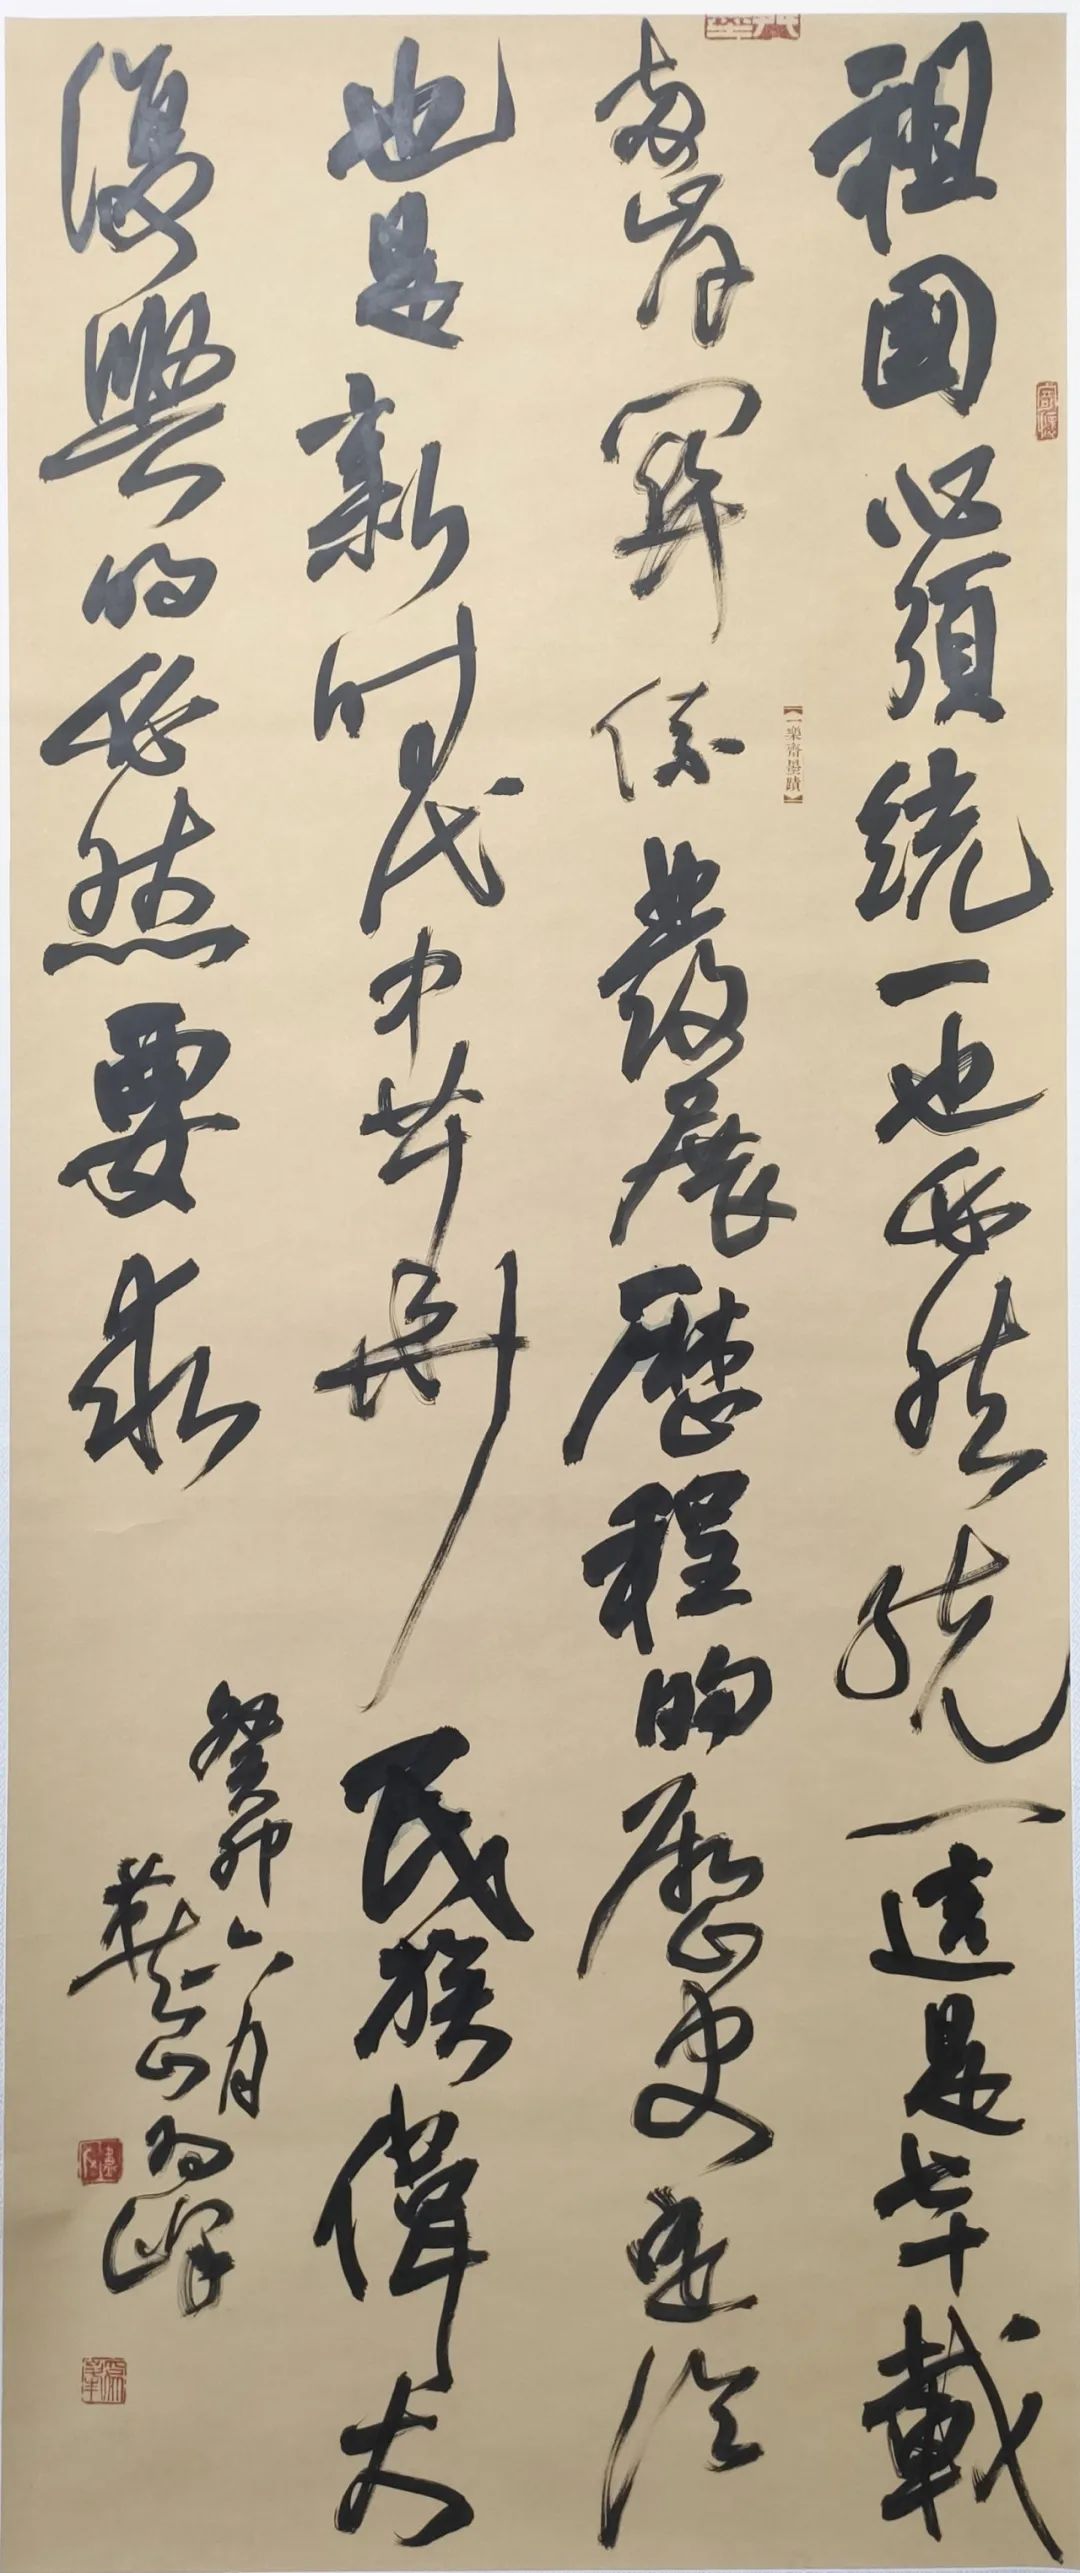 祖國必須統一也必然統一這是七十載
兩岸關係發展歷程的歷史定論
也是新時代中華民族偉大
復興的必然要求
癸卯六月
為峰
【一樂齋墨蹟】